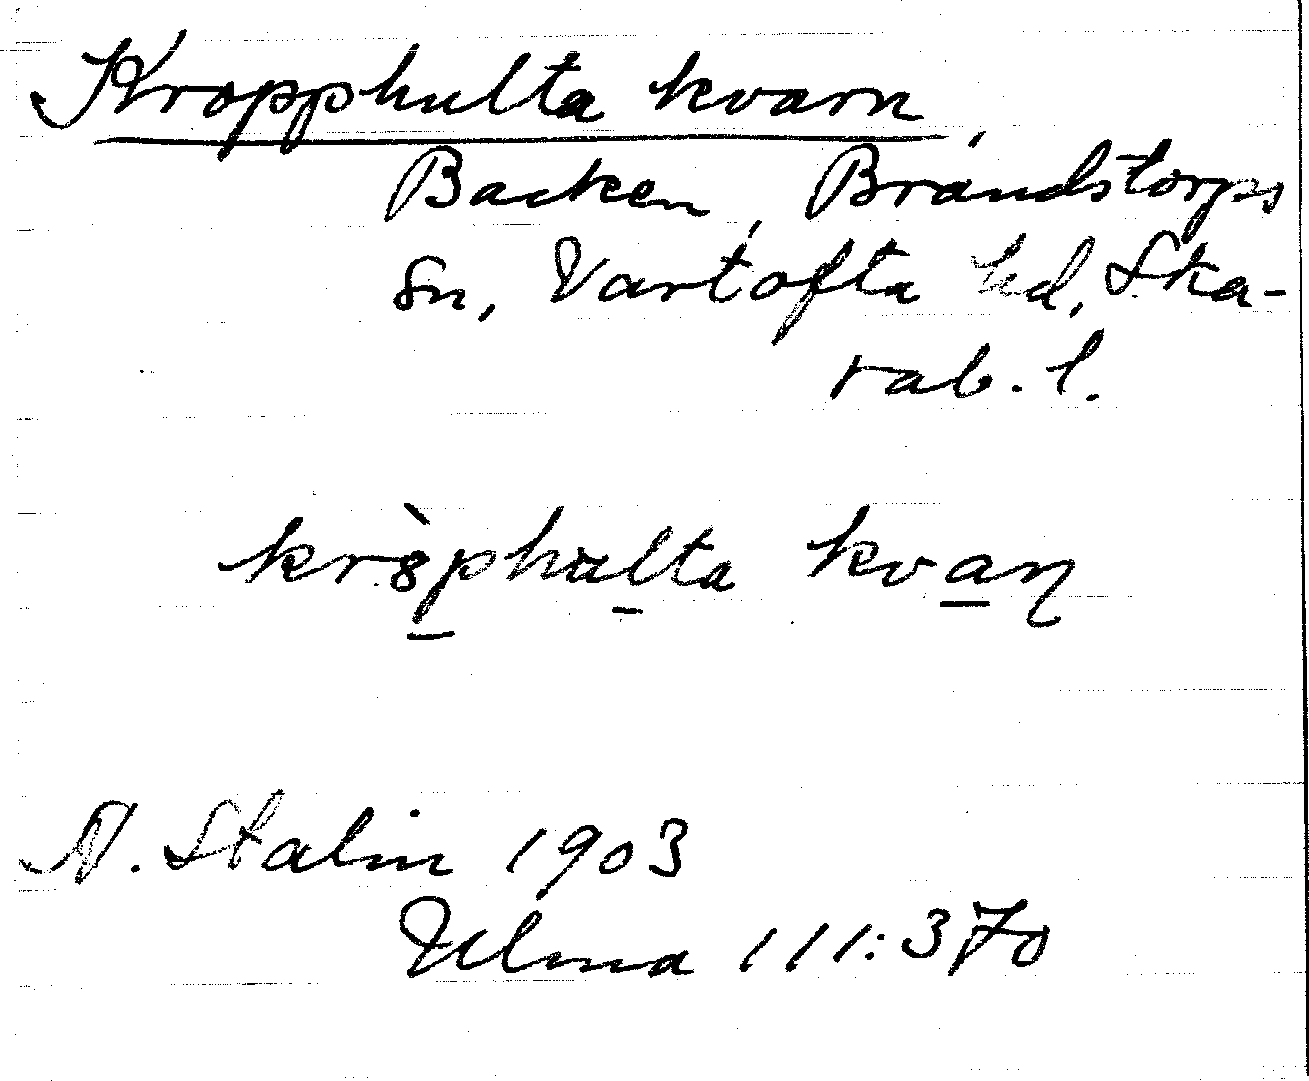 Kropphulta kvarn,
Backen, Brandstorps
sn, Vartofta hd, Ska-
rab. l.
kr8̀phulta kvaɳ
N. Stalin 1903
Ulma 111:370